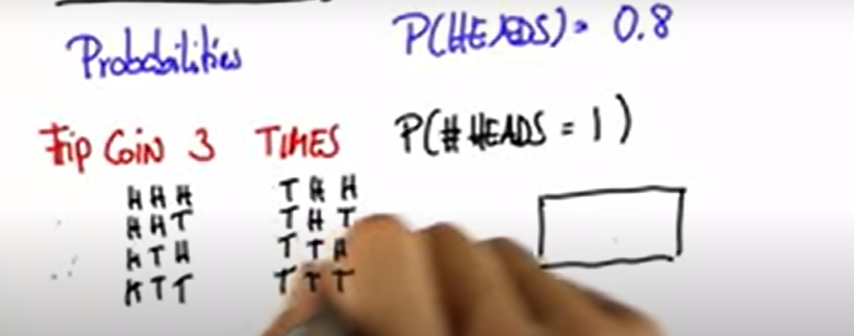 Probabilities
P(HEADS) = 0.8
Flip Coin 3 TIMES
P(# HEADS = 1)
H H H
H H T
H T H
H T T
T H H
T H T
T T H
T T T